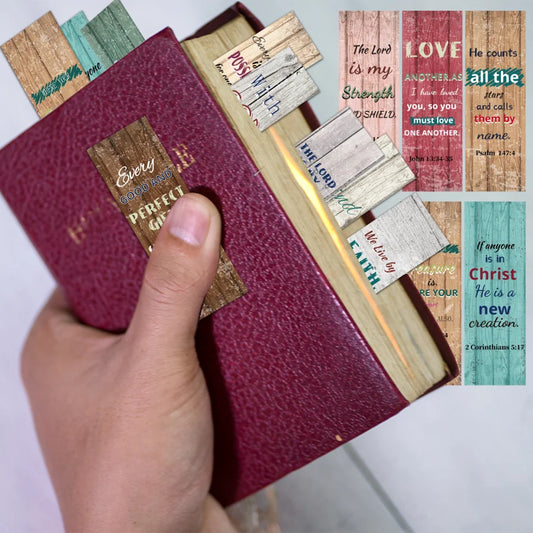 yone
Every
is
POSS
for
with
Every
GOOD AND
PERFECT
GIF
THE LORD
nd
We Live by
FAITH.
The Lord
is my
Strength
D SHIELD.
LOVE
ANOTHER.AS
I have loved
you, so you
must love
ONE ANOTHER.
John 13:34-35
He counts
all the
stars
and calls
them by
name.
Psalm 147:4
treasure
is,
RE YOUR
ALSO.
If anyone
is in
Christ
He is a
new
creation.
2 Corinthians 5:17